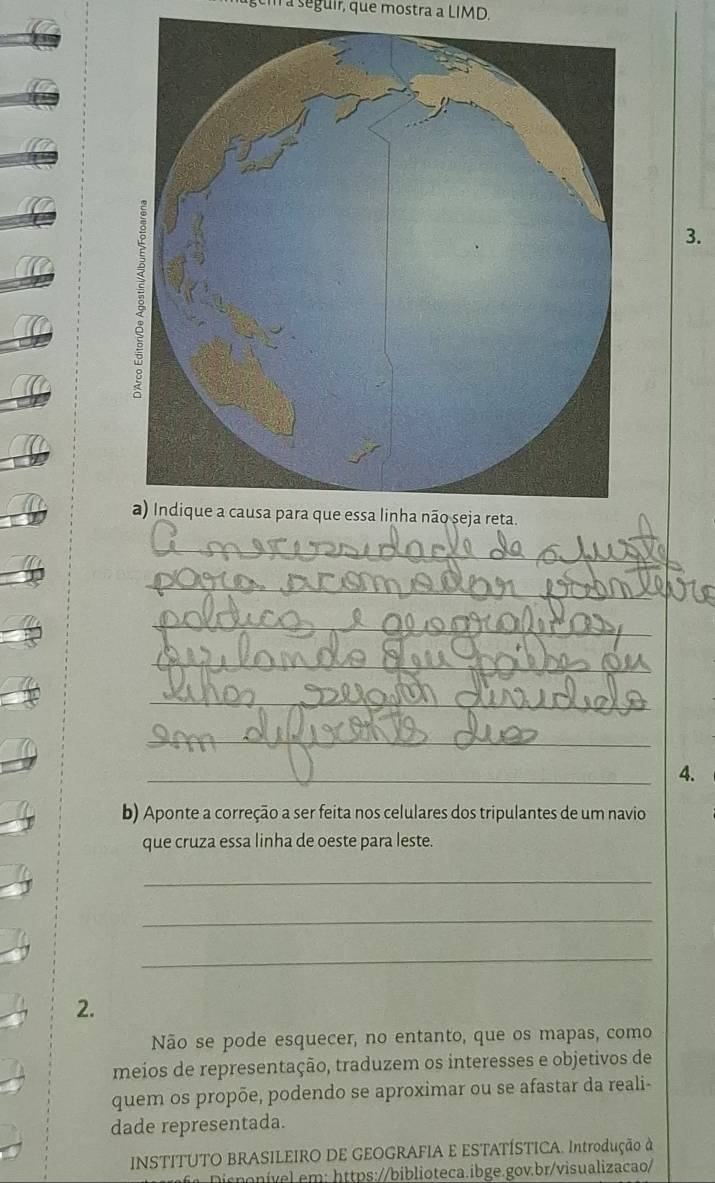 a seguir, que mostra a LIMD.
D'Arco Editori/De Agostini/Album/Fotoarena
3.
a) Indique a causa para que essa linha não seja reta.
a necessidade de ajuste
para acomodar fronteira
política e geográficas,
evitando que países ou
ilhas sejam dividido
em diferente dias
4.
b) Aponte a correção a ser feita nos celulares dos tripulantes de um navio
que cruza essa linha de oeste para leste.
2.
Não se pode esquecer, no entanto, que os mapas, como
meios de representação, traduzem os interesses e objetivos de
quem os propõe, podendo se aproximar ou se afastar da reali-
dade representada.
INSTITUTO BRASILEIRO DE GEOGRAFIA E ESTATÍSTICA. Introdução à
Disponível em: https://biblioteca.ibge.gov.br/visualizacao/